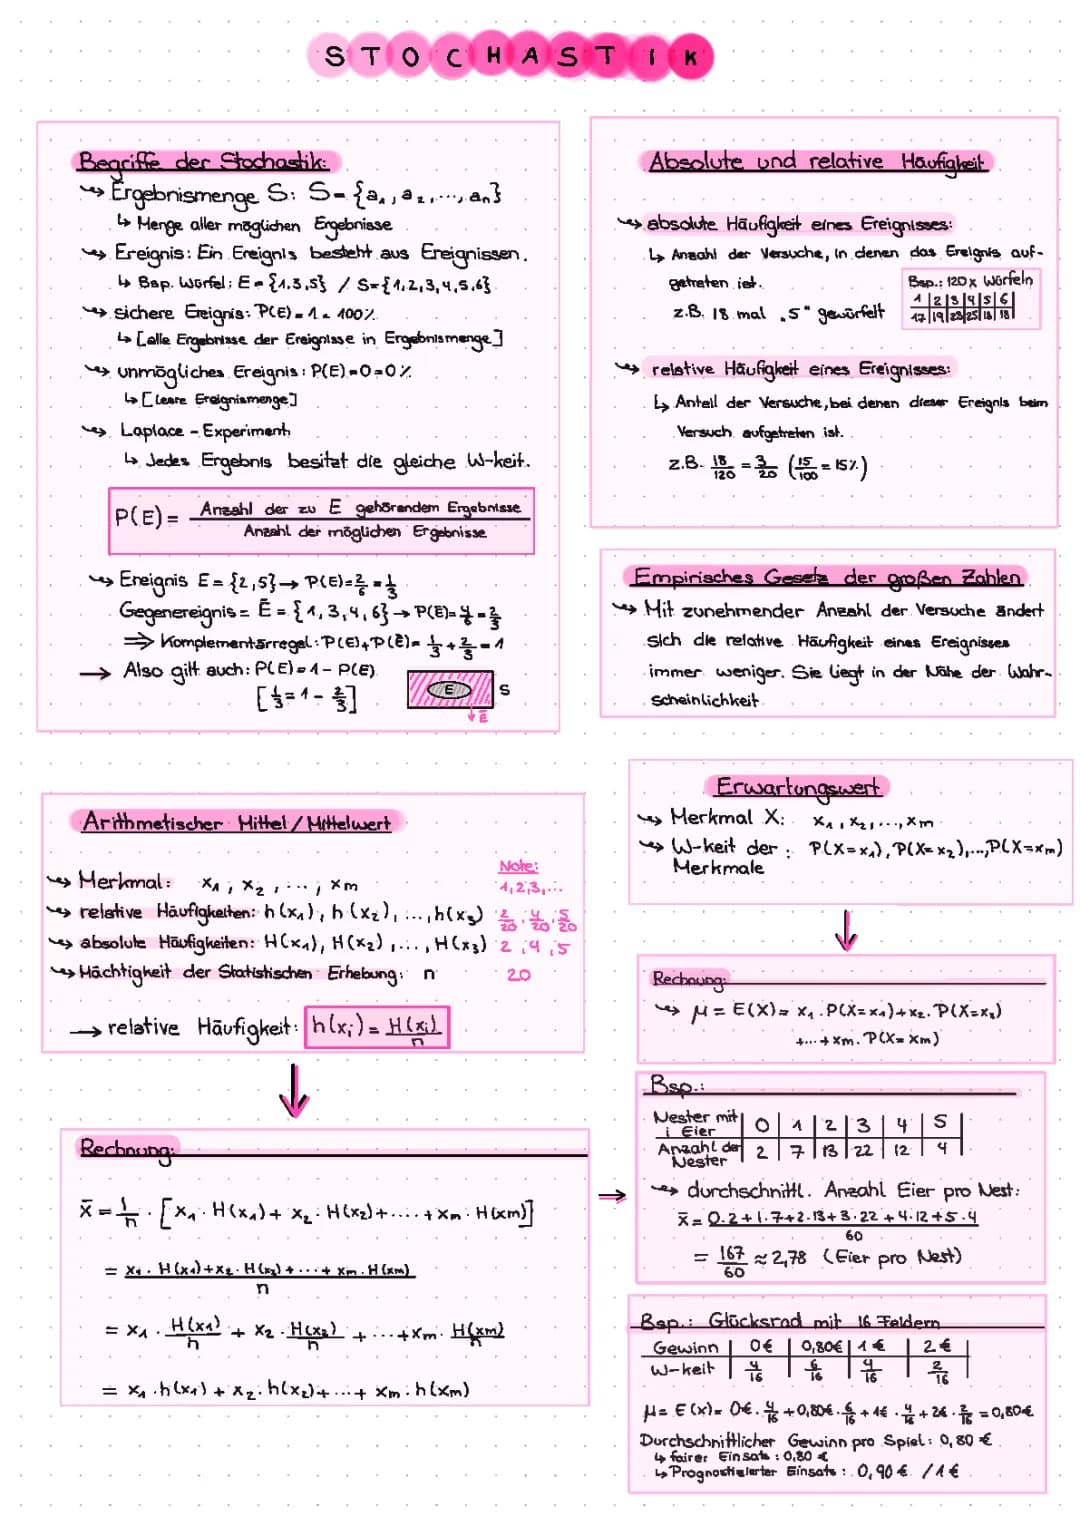 STOCHASTIK
Begriffe der Stochastik:
↝ Ergebnismenge S: S = {a₁, a₂, ..., aₙ}
↳ Menge aller möglichen Ergebnisse
↝ Ereignis: Ein Ereignis besteht aus Ereignissen.
↳ Bsp. Würfel: E = {1,3,5} / S={1,2,3,4,5,6}
↝ sichere Ereignis: P(E) = 1 = 100%
↳ [alle Ergebnisse der Ereignisse in Ergebnismenge]
↝ unmögliches Ereignis: P(E)=0=0%
↳ [leere Ereignismenge]
↝ Laplace - Experiment
↳ Jedes Ergebnis besitzt die gleiche W-keit.
P(E) = Anzahl der zu E gehörendem Ergebnisse / Anzahl der möglichen Ergebnisse
↝ Ereignis E = {2,5} → P(E) = 2/6 = 1/3
Gegenereignis = Ē = {1,3,4,6} → P(E) = 4/6 = 2/3
⇒ Komplementärregel: P(E)+P(Ē) = 1/3 + 2/3 = 1
→ Also gilt auch: P(E) = 1 - P(E)
[1/3 = 1 - 2/3]
E S
Ē
Absolute und relative Häufigkeit
↝ absolute Häufigkeit eines Ereignisses:
↳ Anzahl der Versuche, in denen das Ereignis auf-
getreten ist.
z.B. 18 mal „5" gewürfelt
Bsp.: 120 x Würfeln
1 | 2 | 3 | 4 | 5 | 6 |
17 | 19 | 23 | 25 | 18 | 18 |
↝ relative Häufigkeit eines Ereignisses:
↳ Anteil der Versuche, bei denen dieser Ereignis beim
Versuch aufgetreten ist.
z.B. 18/120 = 3/20 (15/100 = 15%)
Empirisches Gesetz der großen Zahlen
↝ Mit zunehmender Anzahl der Versuche ändert
sich die relative Häufigkeit eines Ereignisses
immer weniger. Sie liegt in der Nähe der Wahr-
scheinlichkeit
Arithmetischer Mittel / Mittelwert
Note:
↝ Merkmal: x₁, x₂, ..., xm 1,2,3,...
↝ relative Häufigkeiten: h(x₁), h(x₂), ..., h(x₃) 2/20, 4/20, 5/20
↝ absolute Häufigkeiten: H(x₁), H(x₂), ..., H(x₃) 2, 4, 5
↝ Mächtigkeit der Statistischen Erhebung: n 20
→ relative Häufigkeit: h(xᵢ) = H(xᵢ)/n
Rechnung:
x̄ = 1/n · [x₁ · H(x₁) + x₂ · H(x₂) + .... + xm · H(xm)]
= x₁ · H(x₁) + x₂ · H(x₂) + ... + xm · H(xm) / n
= x₁ · H(x₁)/n + x₂ · H(x₂)/n + ... + xm · H(xm)/n
= x₁ · h(x₁) + x₂ · h(x₂) + ... + xm · h(xm)
Erwartungswert
↝ Merkmal X: x₁, x₂, ..., xm
↝ W-keit der : P(X=x₁), P(X=x₂),...,P(X=xm)
Merkmale
Rechnung:
↝ μ = E(X) = x₁ · P(X=x₁) + x₂ · P(X=x₂)
+...+ xm · P(X=xm)
Bsp.:
Nester mit i Eier | 0 | 1 | 2 | 3 | 4 | 5 |
Anzahl der Nester | 2 | 7 | 13 | 22 | 12 | 4 |
↝ durchschnittl. Anzahl Eier pro Nest:
x̄ = 0·2+1·7+2·13+3·22+4·12+5·4 / 60
= 167/60 ≈ 2,78 (Eier pro Nest)
Bsp.: Glücksrad mit 16 Feldern
Gewinn | 0€ | 0,80€ | 1€ | 2€ |
W-keit | 4/16 | 6/16 | 4/16 | 2/16 |
μ = E(x) = 0€ · 4/16 + 0,80€ · 6/16 + 1€ · 4/16 + 2€ · 2/16 = 0,80€
Durchschnittlicher Gewinn pro Spiel: 0,80 €
↳ fairer Einsatz: 0,80 €
↳ Prognostizierter Einsatz: 0,90 € / 1 €